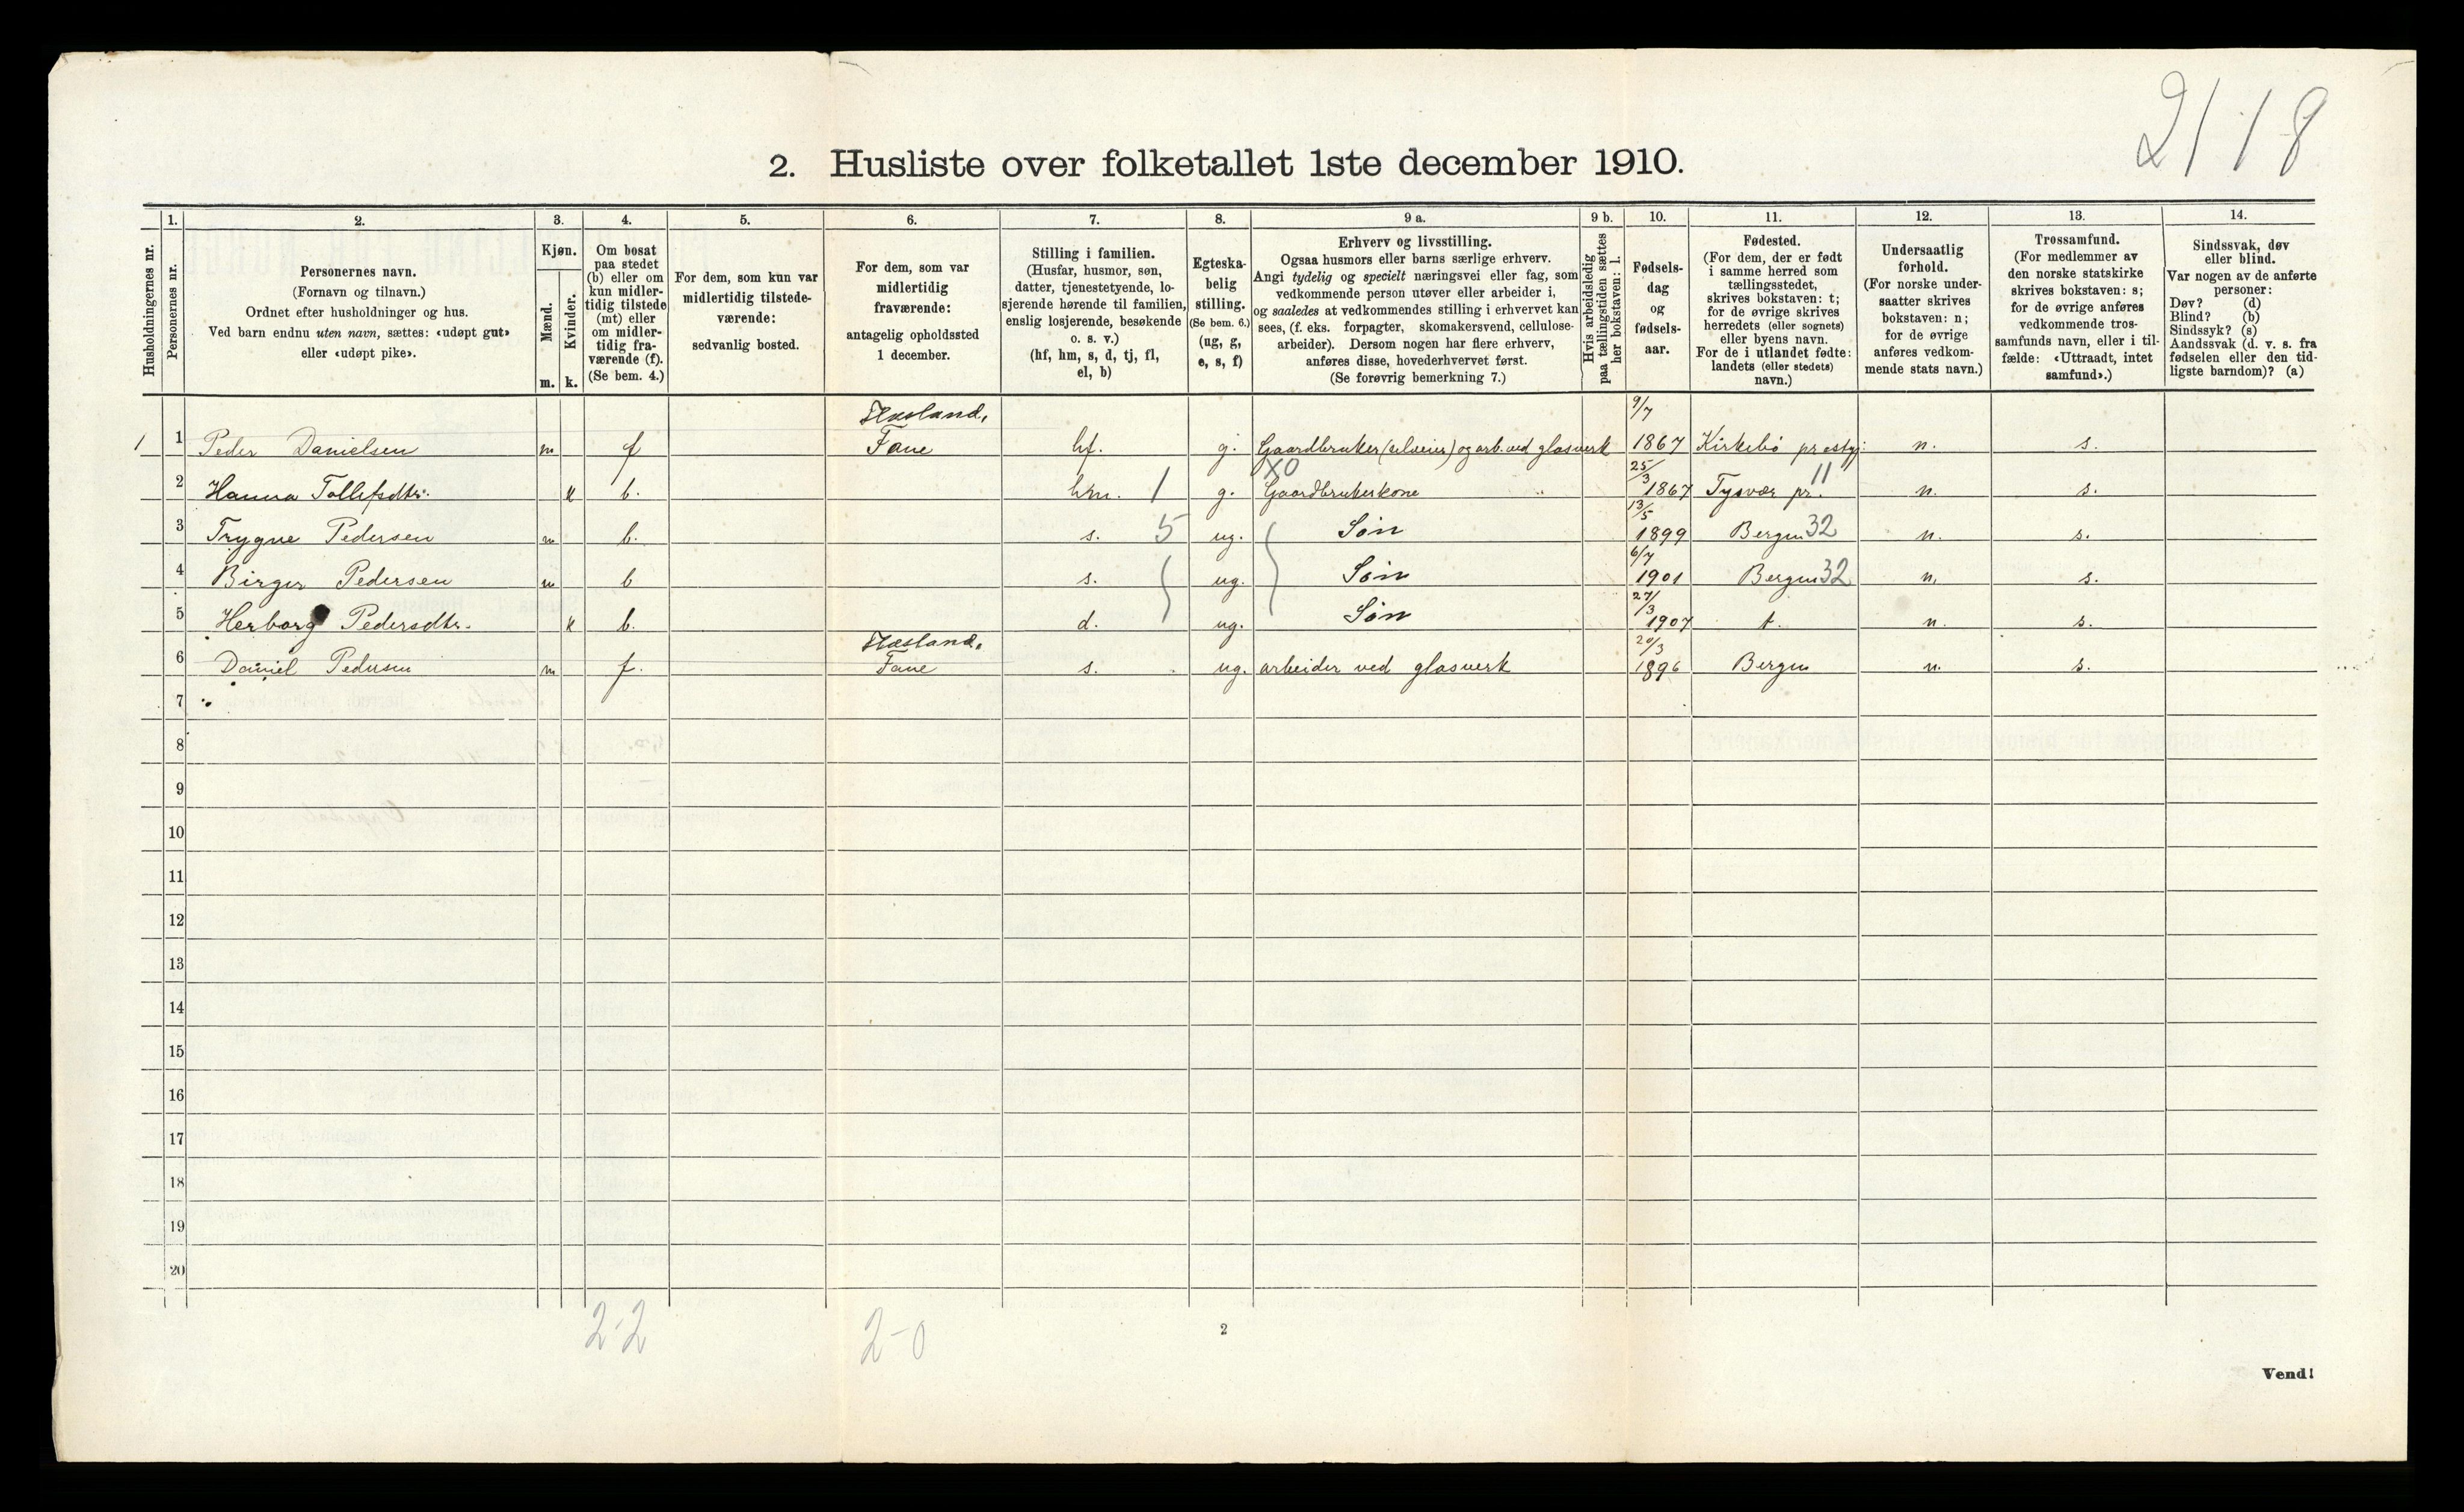 2118
2. Husliste over folketallet 1ste december 1910.
Husholdningernes nr.
1. Personernes nr.
2. Personernes navn. (Fornavn og tilnavn.) Ordnet efter husholdninger og hus. Ved barn endnu uten navn, sættes: «udøpt gut» eller «udøpt pike».
3. Kjøn. Mænd. m. Kvinder. k.
4. Om bosat paa stedet (b) eller om kun midlertidig tilstede (mt) eller om midlertidig fraværende (f). (Se bem. 4.)
5. For dem, som kun var midlertidig tilstedeværende: sedvanlig bosted.
6. For dem, som var midlertidig fraværende: antagelig opholdssted 1 december.
7. Stilling i familien. (Husfar, husmor, søn, datter, tjenestetyende, losjerende hørende til familien, enslig losjerende, besøkende o. s. v.) (hf, hm, s, d, tj, fl, el, b)
8. Egteskabelig stilling. (Se bem. 6.) (ug, g, e, s, f)
9 a. Erhverv og livsstilling. Ogsaa husmors eller barns særlige erhverv. Angi tydelig og specielt næringsvei eller fag, som vedkommende person utøver eller arbeider i, og saaledes at vedkommendes stilling i erhvervet kan sees, (f. eks. forpagter, skomakersvend, cellulosearbeider). Dersom nogen har flere erhverv, anføres disse, hovederhvervet først. (Se forøvrig bemerkning 7.)
9 b. Hvis arbeidsledig paa tællingstiden sættes her bokstaven: l.
10. Fødselsdag og fødselsaar.
11. Fødested. (For dem, der er født i samme herred som tællingsstedet, skrives bokstaven: t; for de øvrige skrives herredets (eller sognets) eller byens navn. For de i utlandet fødte: landets (eller stedets) navn.)
12. Undersaatlig forhold. (For norske undersaatter skrives bokstaven: n; for de øvrige anføres vedkommende stats navn.)
13. Trossamfund. (For medlemmer av den norske statskirke skrives bokstaven: s; for de øvrige anføres vedkommende trossamfunds navn, eller i tilfælde: «Uttraadt, intet samfund».)
14. Sindssvak, døv eller blind. Var nogen av de anførte personer: Døv? (d) Blind? (b) Sindssyk? (s) Aandssvak (d. v. s. fra fødselen eller den tidligste barndom)? (a)
1 1 Peder Danielsen m f Fane hf. g. Gaardbruker (selveier) og arb. ved glasverk 9/7 1867 Kirkebö prestgj: n. s.
X0
2 Hanna Tollefsdtr. k b. hm. 1 g. Gaardbrukerkone " 25/3 1867 Tysvær pr. 11 n. s.
3 Trygve Pedersen m b. s. 5 ug. Sön 13/5 1899 Bergen 32 n. s.
4 Birger Pedersen m b s. ug. Sön 6/7 1901 Bergen 32 n. s.
5 Herborg Pedersdtr. k b. d. ug. Sön 27/3 1907 t. n. s.
6 Daniel Pedersen m f. Fane s. ug. arbeider ved glasverk 20/3 1896 Bergen n. s.
7
8
9
10
11
12
13
14
15
16
17
18
19
20
2-2 2-0
2
Vend!